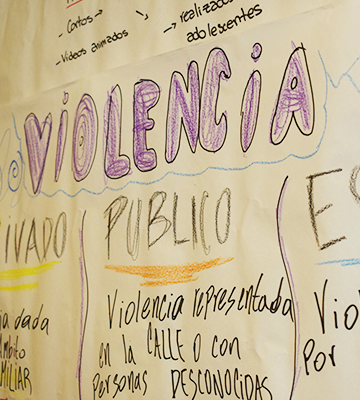 - Cortos → realizados
- Videos animados adolescentes
VIOLENCIA
IVADO
PUBLICO
Violencia representada
en la CALLE o con
Personas DESCONOCIDAS
ia dada
ámbito
MILIAR
ES
Vio
Por